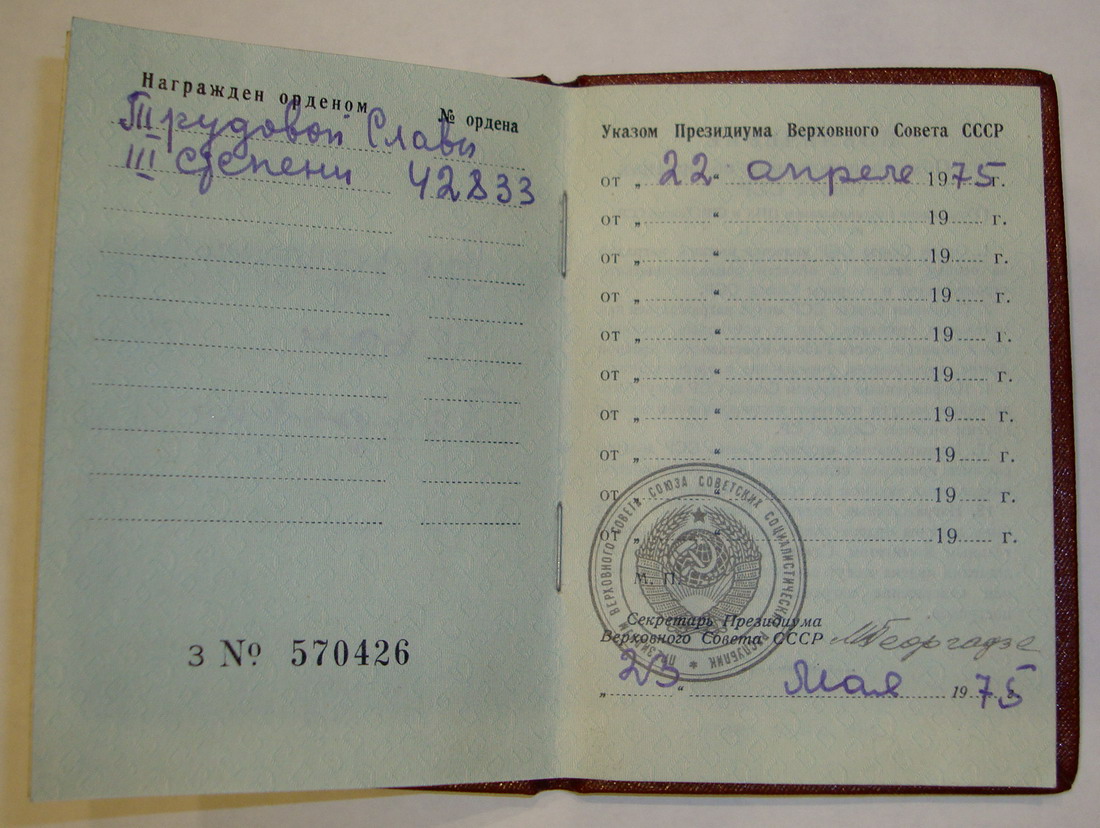 Награжден орденом № ордена
Трудовой Славы
III степени 42833
З № 570426
Указом Президиума Верховного Совета СССР
от „ 22 “ апреле 1975г.
от „ “ 19 г.
от „ “ 19 г.
от „ “ 19 г.
от „ “ 19 г.
от „ “ 19 г.
от „ “ 19 г.
от „ “ 19 г.
от „ “ 19 г.
от „ “ 19 г.
ПРЕЗИДИУМ ВЕРХОВНОГО СОВЕТА СОЮЗА СОВЕТСКИХ СОЦИАЛИСТИЧЕСКИХ РЕСПУБЛИК
М. П.
Секретарь Президиума
Верховного Совета СССР МГеоргадзе
„ 23 “ Мая 1975 г.